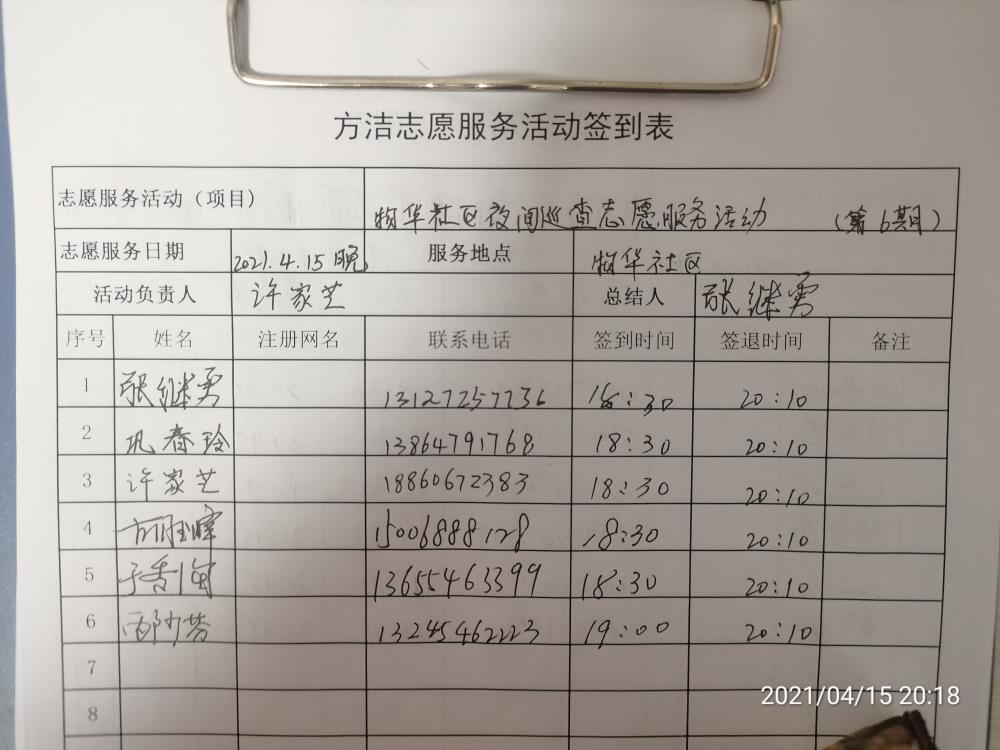 方洁志愿服务活动签到表
志愿服务活动（项目） 物华社区夜间巡查志愿服务活动 （第6期）
志愿服务日期 2021.4.15晚 服务地点 物华社区
活动负责人 许家芝 总结人 张继勇
序号 姓名 注册网名 联系电话 签到时间 签退时间 备注
1 张继勇 13127257236 18:30 20:10
2 巩春玲 13864791768 18:30 20:10
3 许家芝 18860672383 18:30 20:10
4 15006888128 18:30 20:10
5 13655463399 18:30 20:10
6 13245462223 19:00 20:10
7
8
2021/04/15 20:18